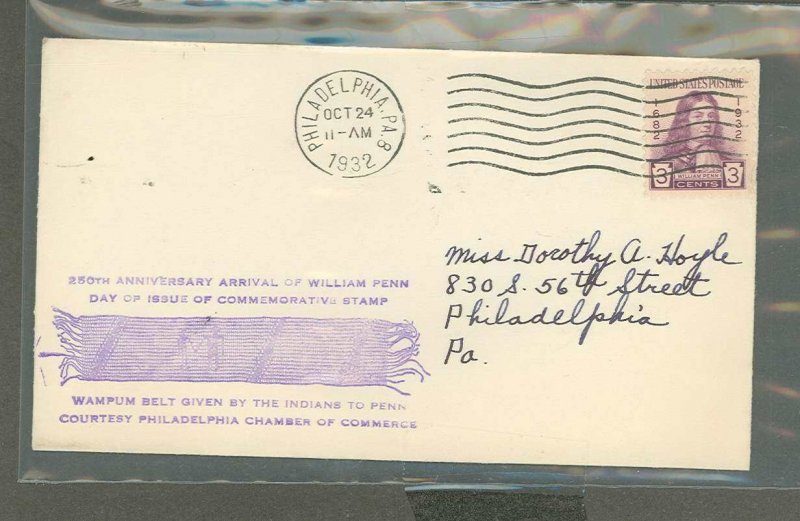 PHILADELPHIA, PA. 8
OCT 24
11-AM
1932
UNITED STATES POSTAGE
1682
1932
WILLIAM PENN
3 CENTS 3
Miss Dorothy A. Hoyle
830 S. 56th Street
Philadelphia
Pa.
250TH ANNIVERSARY ARRIVAL OF WILLIAM PENN
DAY OF ISSUE OF COMMEMORATIVE STAMP
WAMPUM BELT GIVEN BY THE INDIANS TO PENN
COURTESY PHILADELPHIA CHAMBER OF COMMERCE